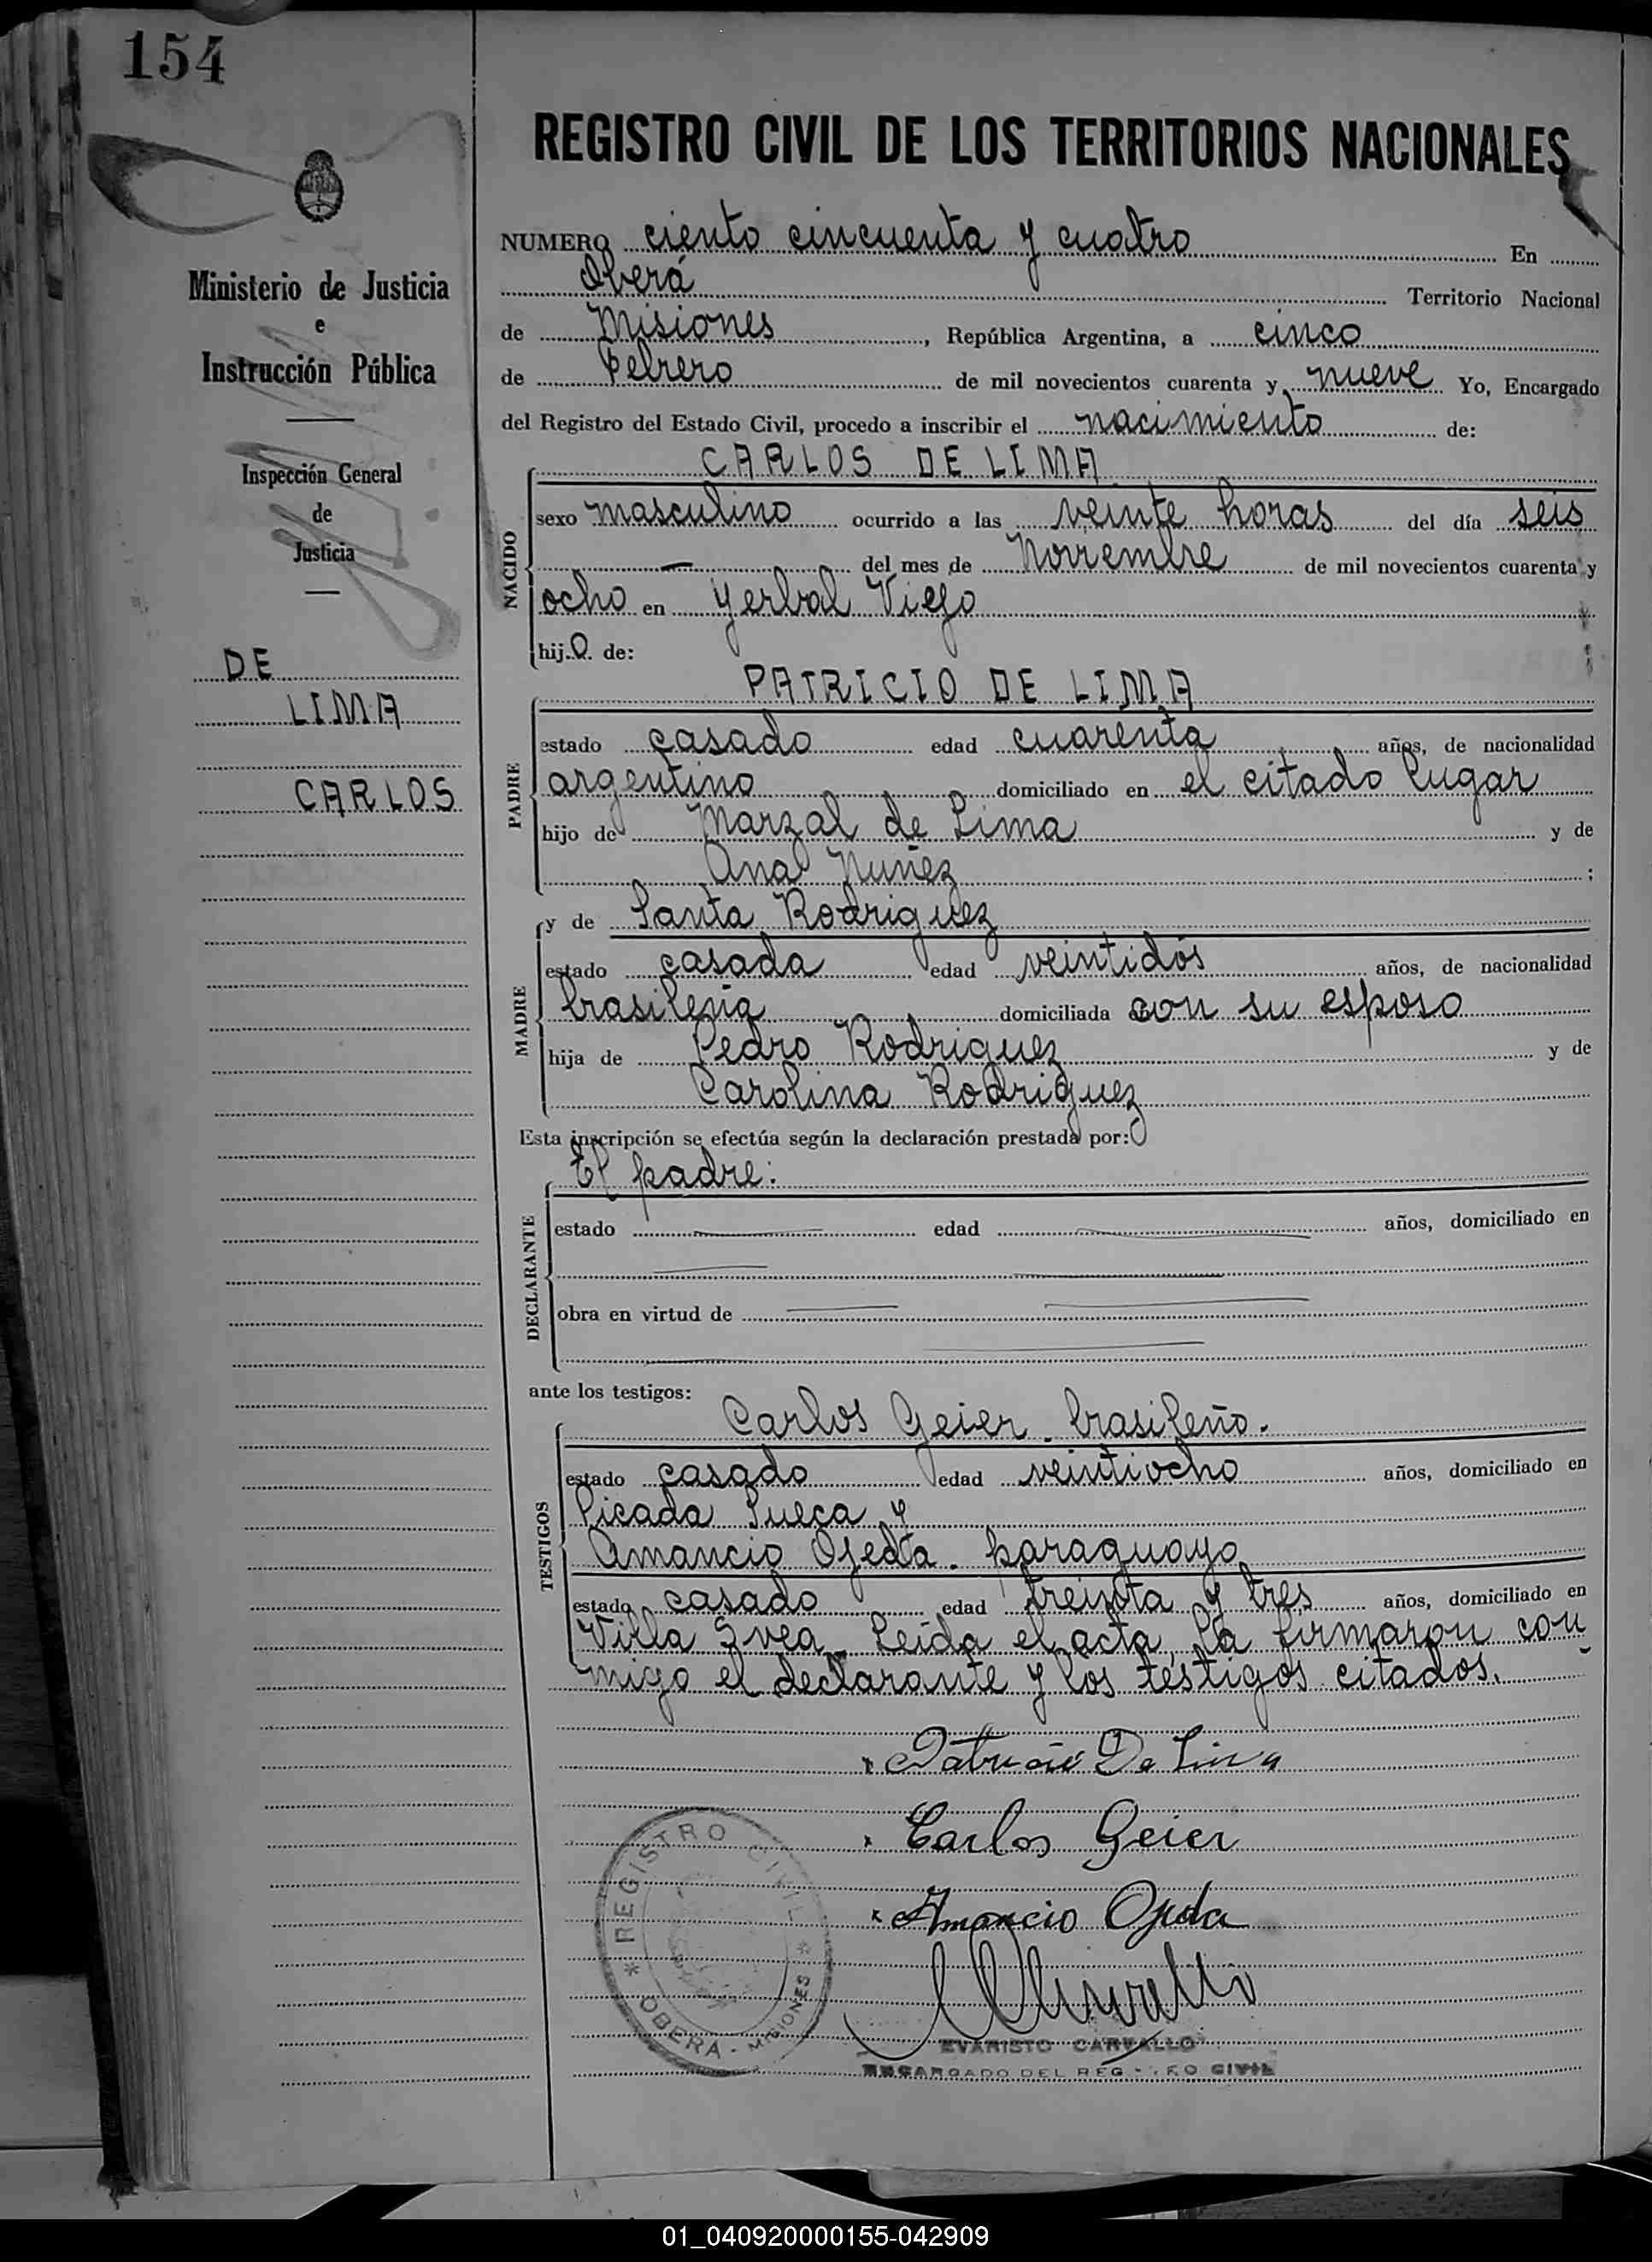 154
REGISTRO CIVIL DE LOS TERRITORIOS NACIONALES
Ministerio de Justicia
e
Instrucción Pública
Inspección General
de
Justicia
DE
LIMA
CARLOS
NUMERO ciento cincuenta y cuatro En
Oberá Territorio Nacional
de Misiones, República Argentina, a cinco
de Febrero de mil novecientos cuarenta y nueve Yo, Encargado
del Registro del Estado Civil, procedo a inscribir el nacimiento de:
NACIDO
CARLOS DE LIMA
sexo masculino ocurrido a las veinte horas del día seis
— del mes de Noviembre de mil novecientos cuarenta y
ocho en Yerbal Viejo
hijo de:
PADRE
PATRICIO DE LIMA
estado casado edad cuarenta años, de nacionalidad
argentino domiciliado en el citado lugar
hijo de Marzal de Lima y de
Ana Nuñez ;
MADRE
y de Santa Rodriguez
estado casada edad veintidós años, de nacionalidad
brasileña domiciliada con su esposo
hija de Pedro Rodriguez y de
Carolina Rodriguez
Esta inscripción se efectúa según la declaración prestada por:
DECLARANTE
El padre:
estado edad años, domiciliado en
obra en virtud de
ante los testigos:
TESTIGOS
Carlos Geier. brasileño.
estado casado edad veintiocho años, domiciliado en
Picada Sueca y
Amancio Ojeda. paraguayo
estado casado edad treinta y tres años, domiciliado en
Villa Svea. Leída el acta, la firmaron con
migo el declarante y los testigos citados.
Patricio De Lima
Carlos Geier
Amancio Ojeda
REGISTRO CIVIL
OBERA - MISIONES
EVARISTO CARVALLO
ENCARGADO DEL REGISTRO CIVIL
01_040920000155-042909